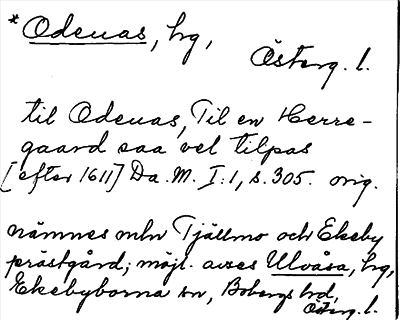 *Odenas, hg,
Österg. l.
til Odenas, Til en Herre-
gaard saa vel tilpas
[efter 1611] Da. M. I:1, s. 305. orig.
nämnes mln Tjällmo och Ekeby
prästgård; möjl. avses Ulvåsa, hg,
Ekebyborna sn, Bobergs hd,
Österg. l.